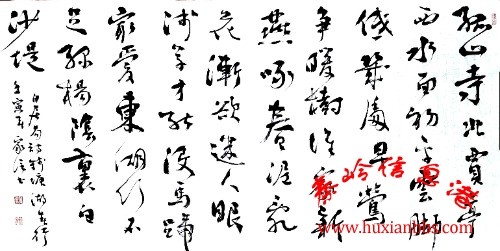 孤山寺北賈亭
西水面初平雲腳
低幾處早鶯
爭暖樹誰家新
燕啄春泥亂
花漸欲迷人眼
淺草才能沒馬蹄
最愛東湖行不
足綠楊陰裏白
沙堤
白居易詩錢塘湖春行
壬寅年家書